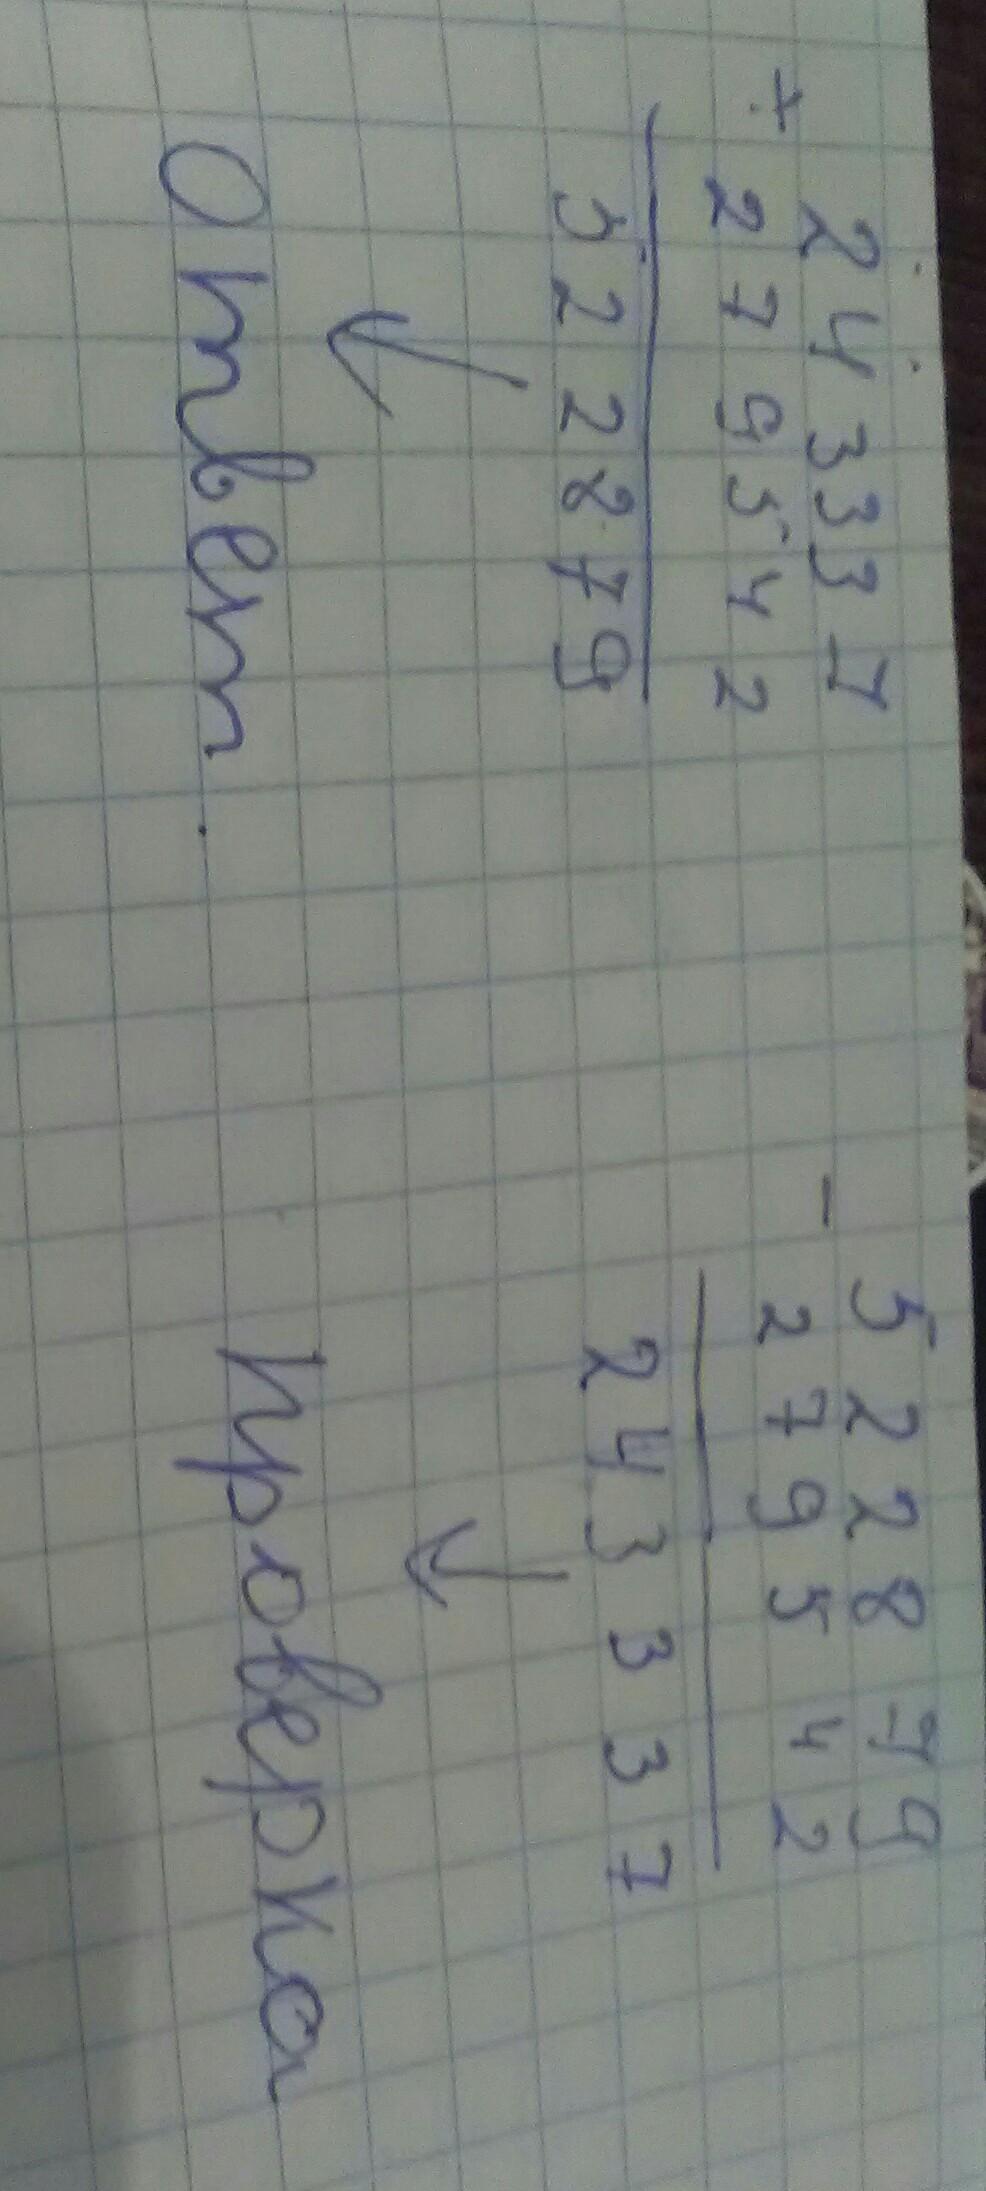 +
243337
279542
522879
↓
Ответ.
-
522879
279542
243337
↓
проверка